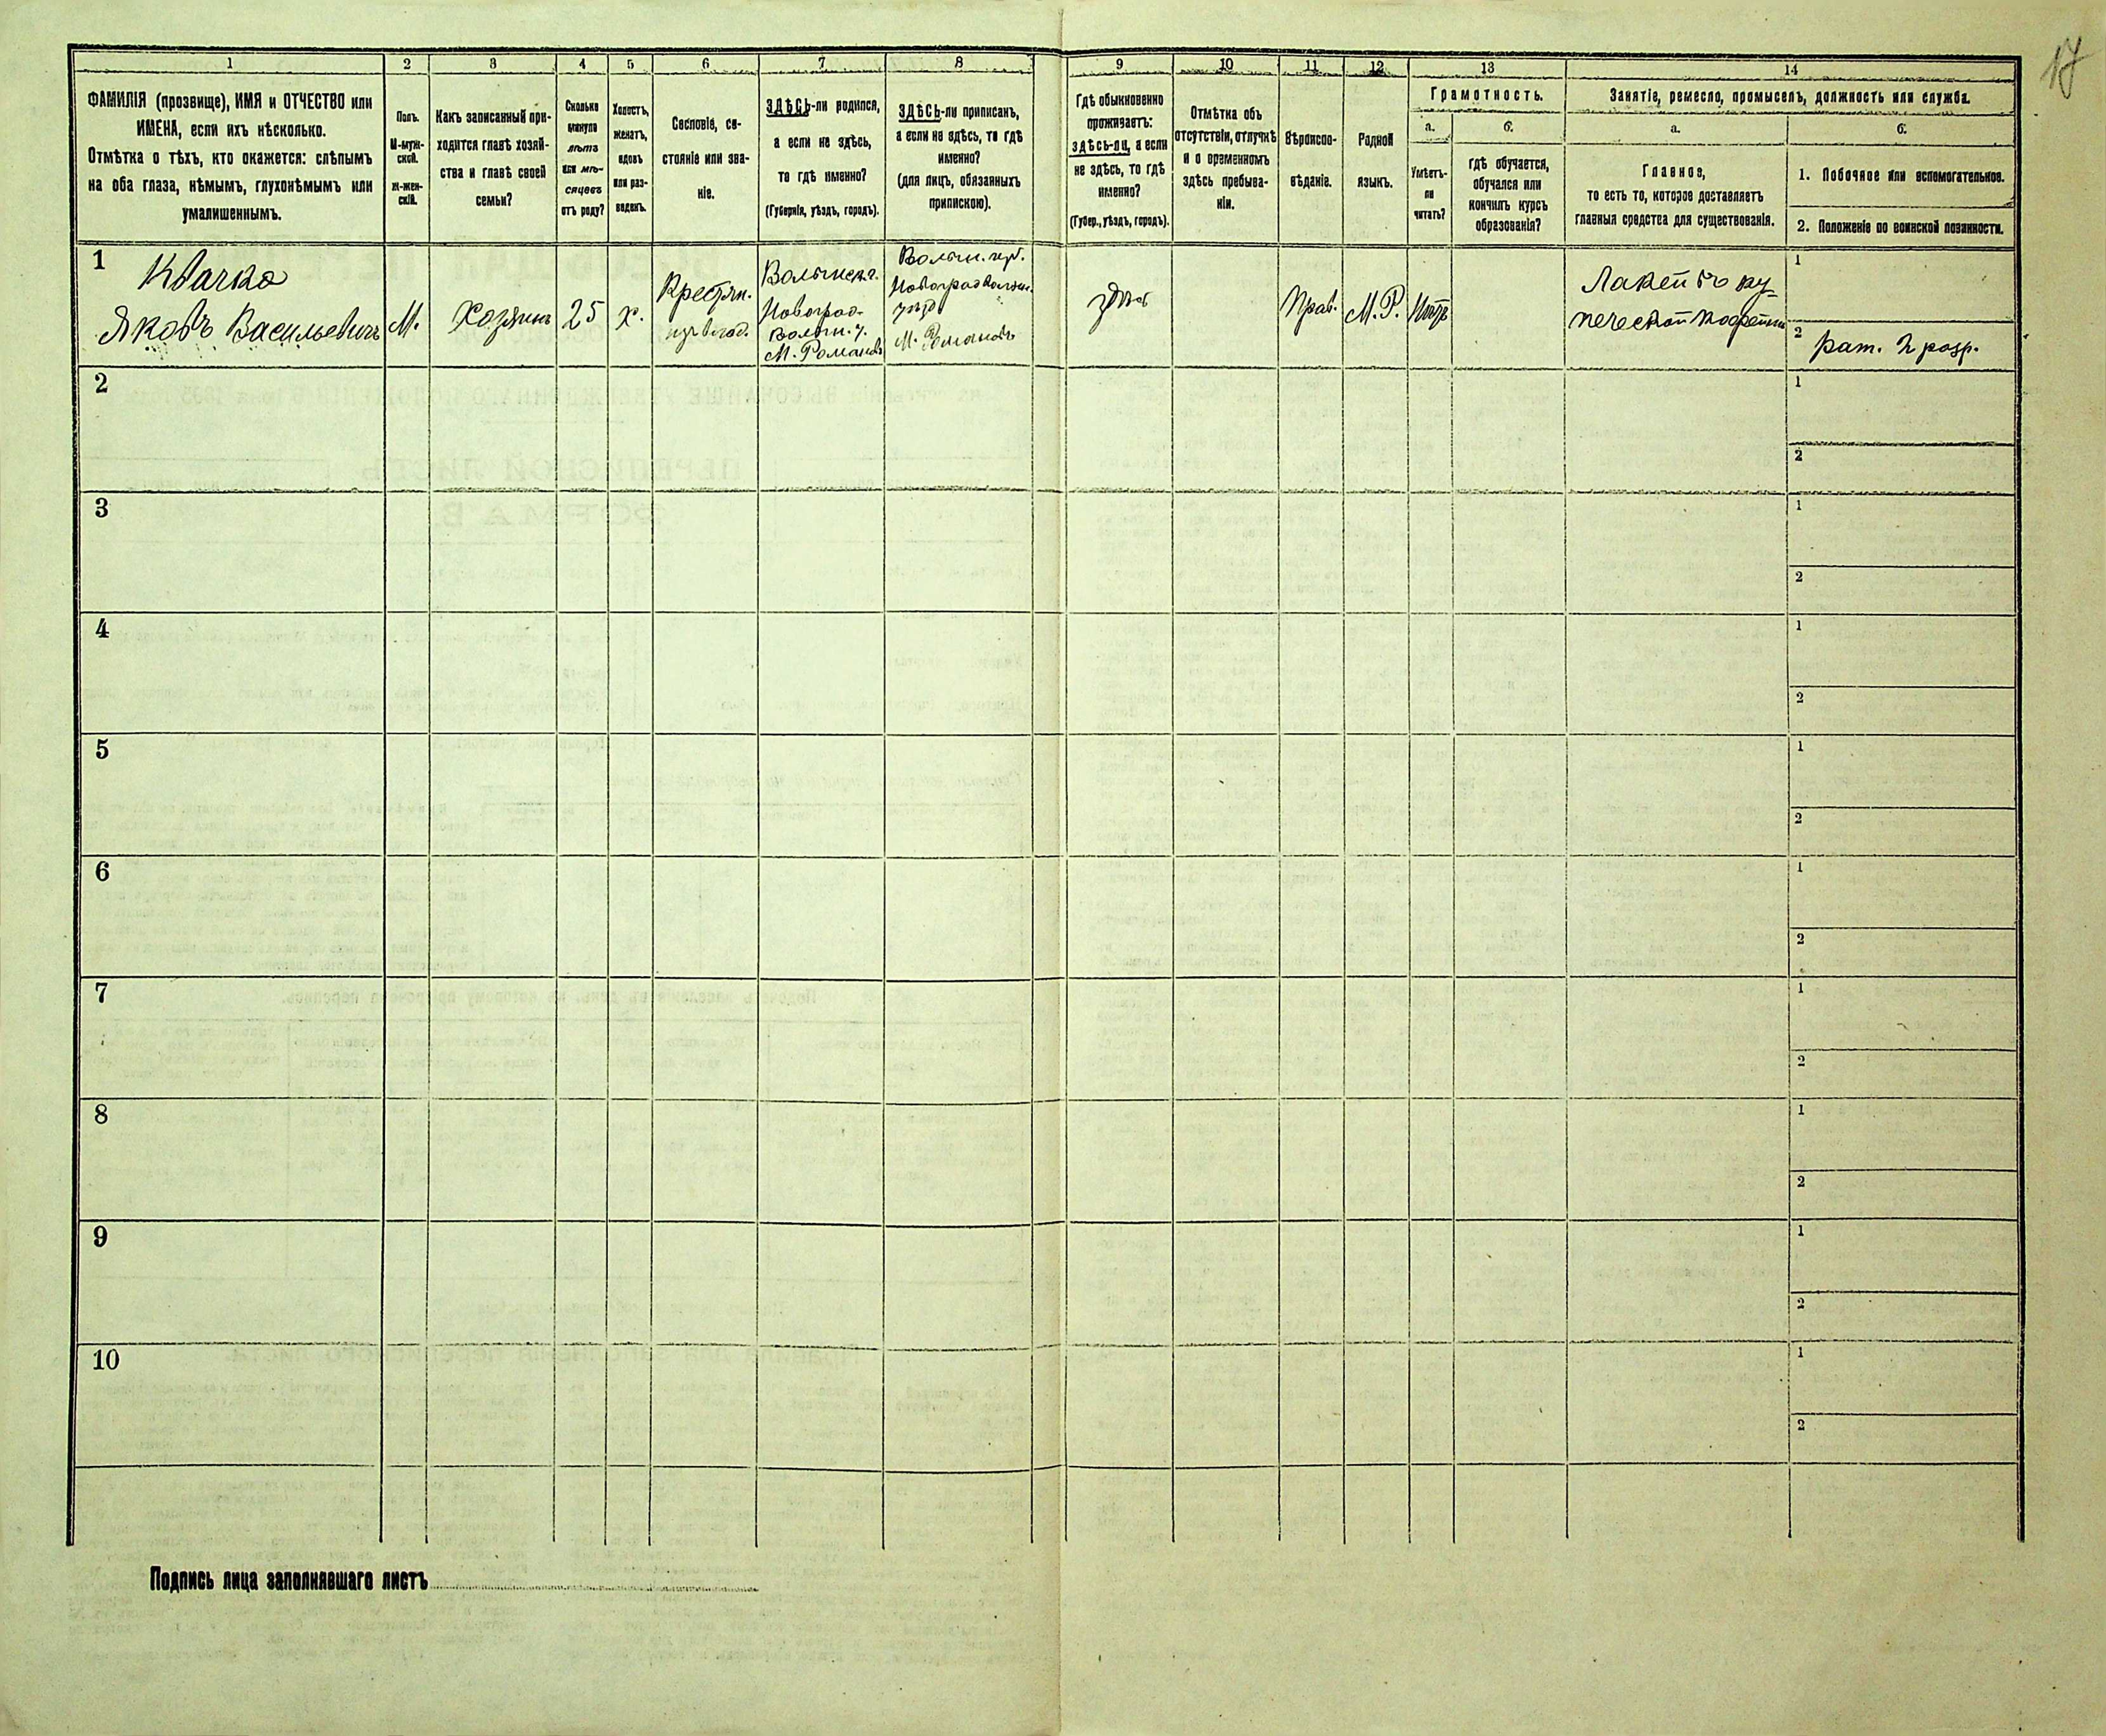 17
1
2
3
4
5
6
7
8
9
10
11
12
13
14
ФАМИЛІЯ (прозвище), ИМЯ и ОТЧЕСТВО или
ИМЕНА, если ихъ нѣсколько.
Отмѣтка о тѣхъ, кто окажется: слѣпымъ
на оба глаза, нѣмымъ, глухонѣмымъ или
умалишеннымъ.
Полъ.
М-муж-
ской.
ж-жен-
скій.
Какъ записанный при-
ходится главѣ хозяй-
ства и главѣ своей
семьи?
Сколько
минуло
лѣтъ
или мѣ-
сяцевъ
отъ роду?
Холостъ,
женатъ,
вдовъ
или раз-
веденъ.
Сословіе, со-
стояніе или зва-
ніе.
ЗДѢСЬ-ли родился,
а если не здѣсь,
то гдѣ именно?
(Губернія, уѣздъ, городъ).
ЗДѢСЬ-ли приписанъ,
а если не здѣсь, то гдѣ
именно?
(для лицъ, обязанныхъ
припискою).
Гдѣ обыкновенно
проживаетъ:
здѣсь-ли, а если
не здѣсь, то гдѣ
именно?
(Губер., уѣздъ, городъ).
Отмѣтка объ
отсутствіи, отлучкѣ
и о временномъ
здѣсь пребыва-
ніи.
Вѣроиспо-
вѣданіе.
Родной
языкъ.
Грамотность.
а.
б.
Умѣетъ-
ли
читать?
гдѣ обучается,
обучался или
кончилъ курсъ
образованія?
Занятіе, ремесло, промыселъ, должность или служба.
а.
б.
Главное,
то есть то, которое доставляетъ
главныя средства для существованія.
1. Побочное или вспомогательное.
2. Положеніе по воинской повинности.
1
Квачко
Яковъ Васильевичъ
М.
Хозяинъ
25
х.
Крестян.
Волынск. г.
Новоград-
Волын. у.
М. Романовъ
Волын. губ.
Новоградволын.
уѣзд
М. Романовъ
здѣсь
Прав.
М. Р.
Нѣтъ
Лакей въ ку-
печеской кофейни
1
2
рат. 2 разр.
2
1
2
3
1
2
4
1
2
5
1
2
6
1
2
7
1
2
8
1
2
9
1
2
10
1
2
Подпись лица заполнявшаго листъ